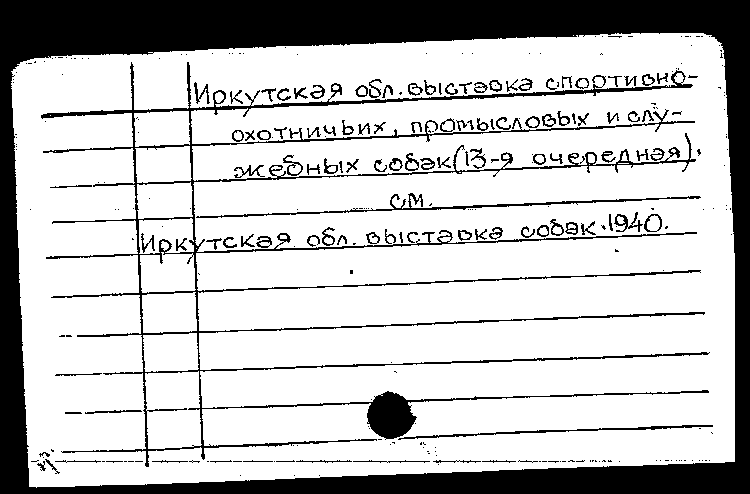 Иркутская обл. выставка спортивно-
охотничьих, промысловых и слу-
жебных собак (13-я очередная).
см.
Иркутская обл. выставка собак. 1940.